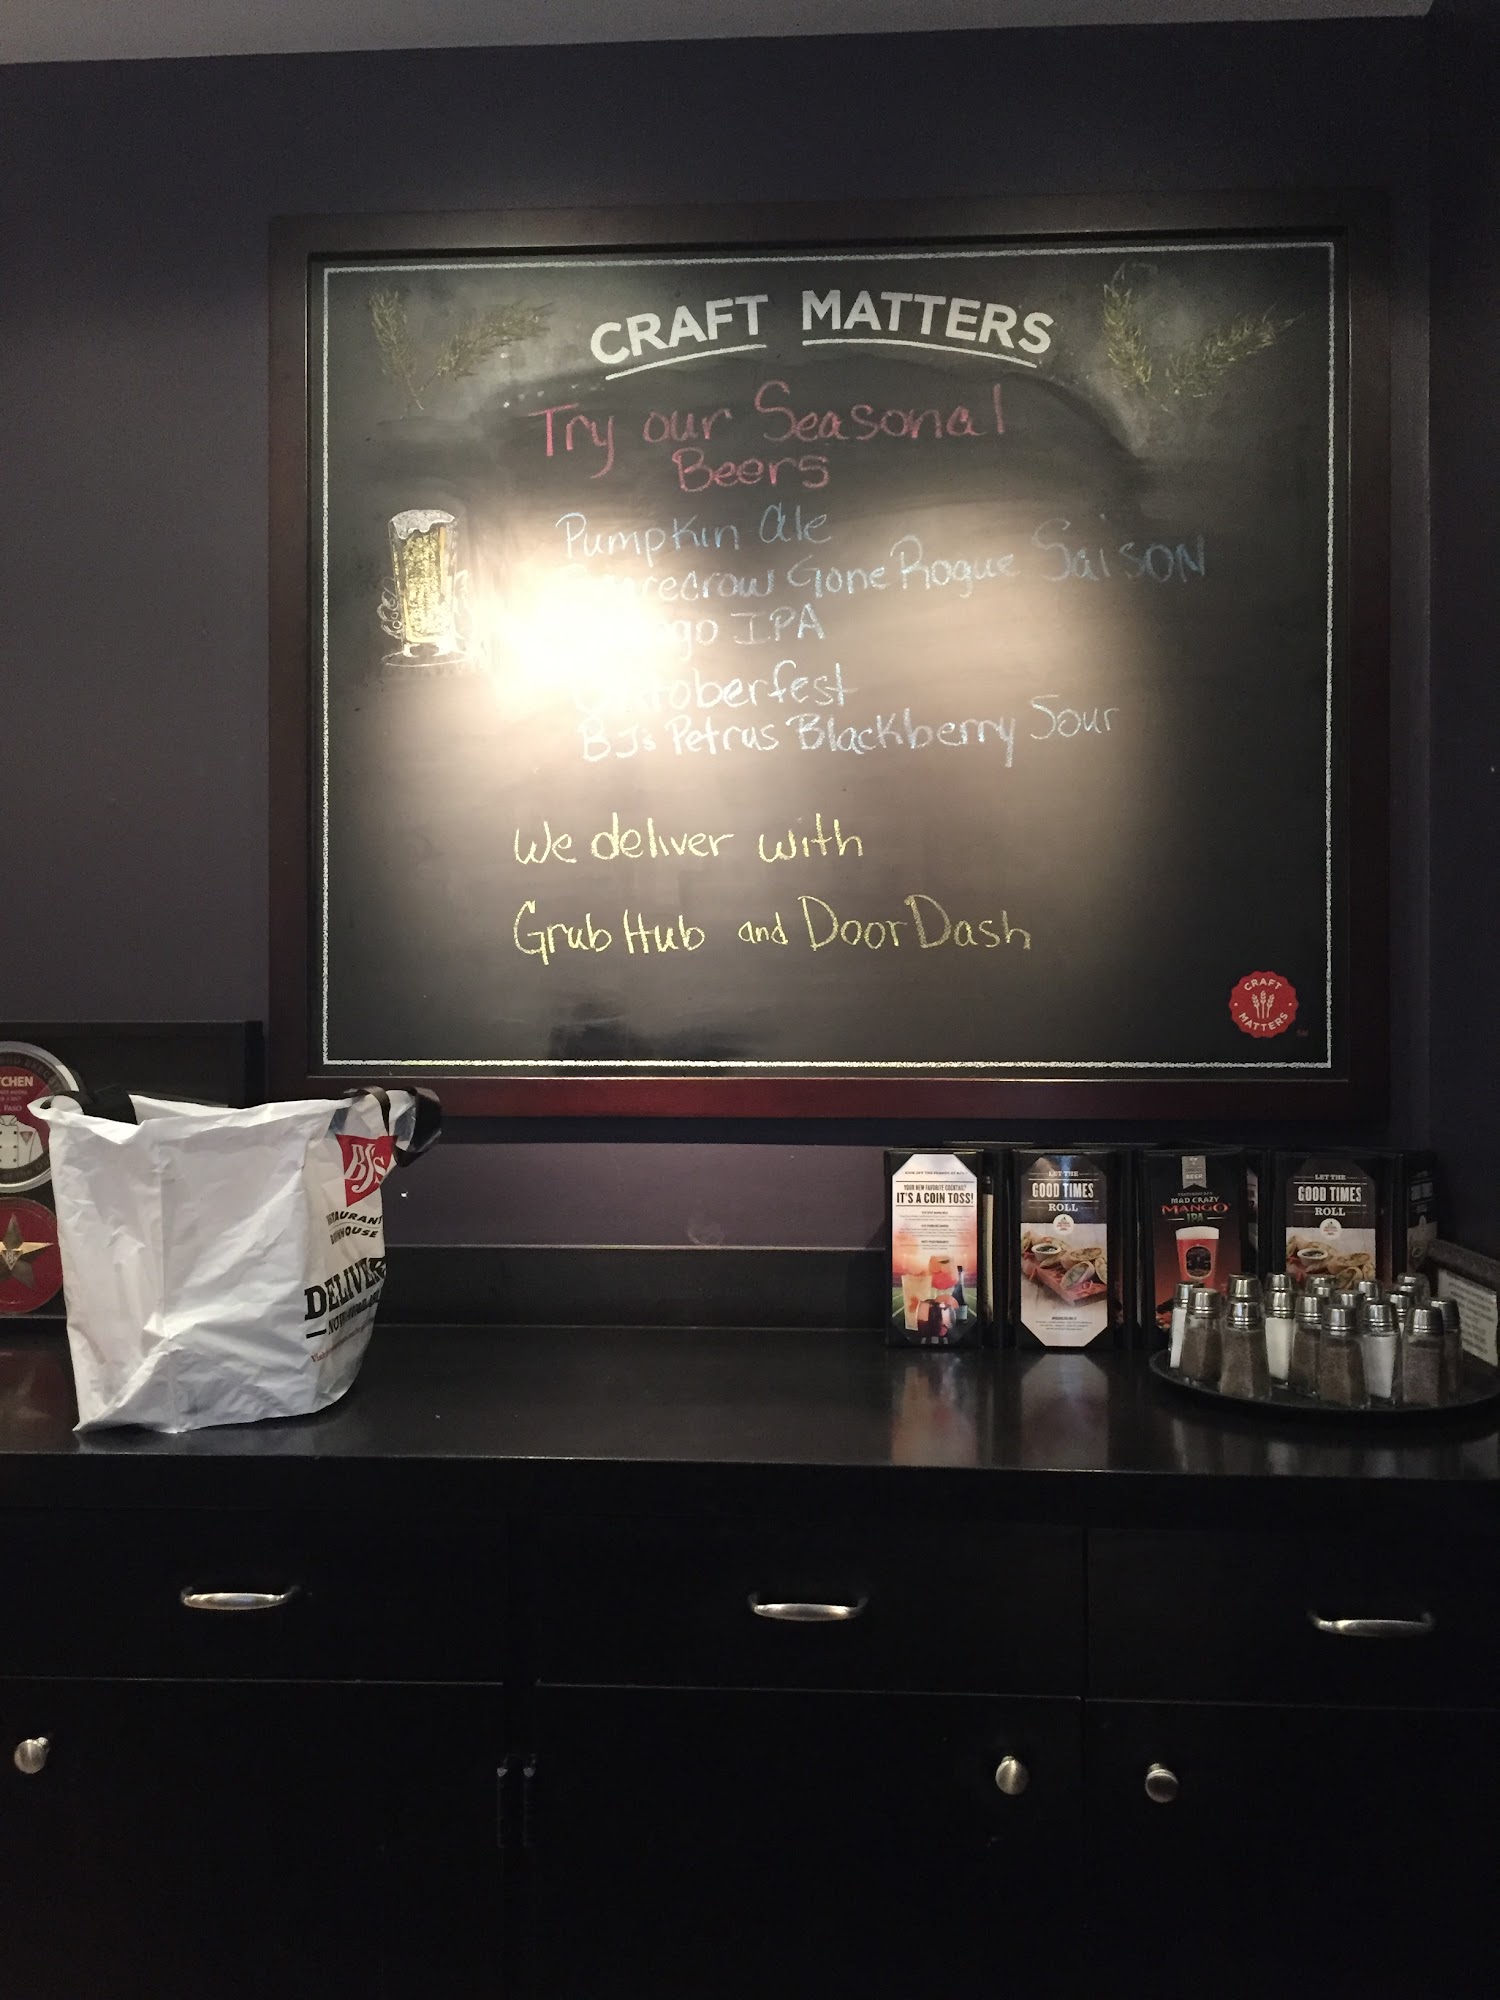 CRAFT MATTERS
Try our Seasonal
Beers
Pumpkin Ale
Scarecrow Gone Rogue Saison
IPA
Oktoberfest
BJs Petrus Blackberry Sour
We deliver with
GrubHub and DoorDash
CRAFT
MATTERS
TCHEN
BJ's
RESTAURANT
BREWHOUSE
YOUR NEW FAVORITE COCKTAIL?
IT'S A COIN TOSS!
LET THE
GOOD TIMES
ROLL
BEER
MAD CRAZY
MANGO
IPA
LET THE
GOOD TIMES
ROLL